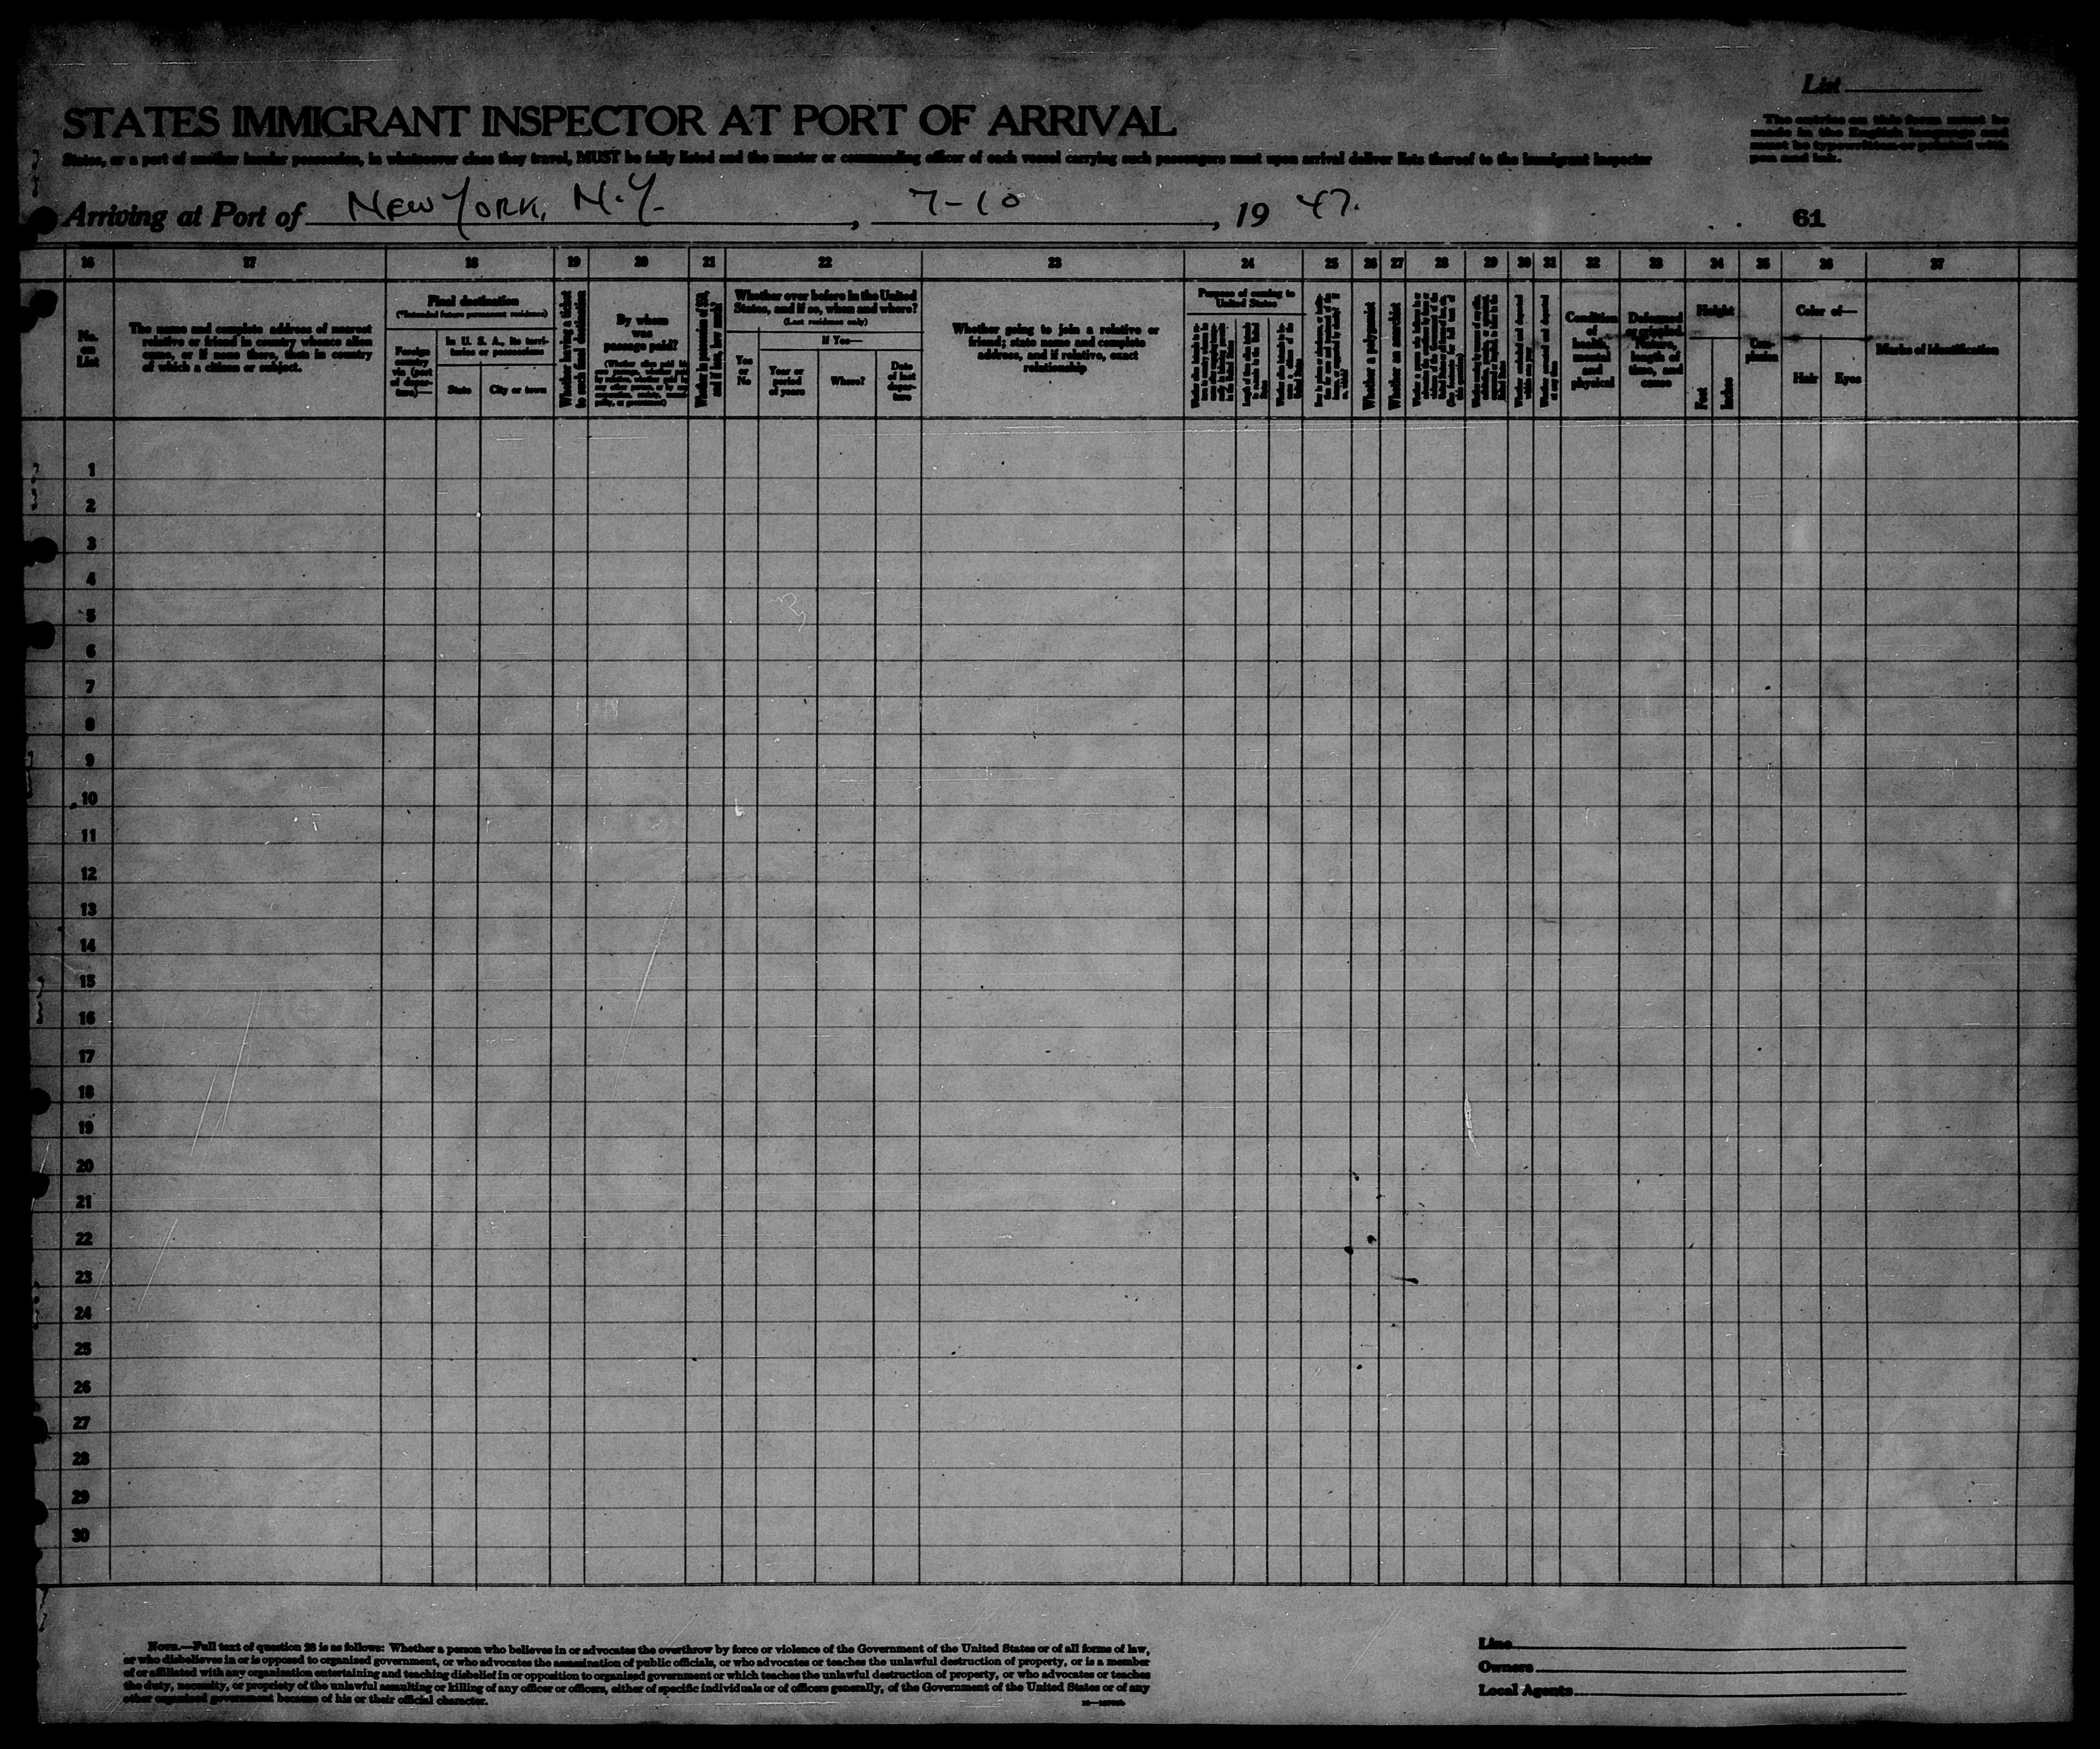 List
STATES IMMIGRANT INSPECTOR AT PORT OF ARRIVAL
The entries on this form must be
made in the English language and
must be typewritten or printed with
pen and ink.
States, or a part of another insular possession, in whatsoever class they travel, MUST be fully listed and the master or commanding officer of each vessel carrying such passengers must upon arrival deliver lists thereof to the immigrant inspector
Arriving at Port of New York, N.Y. , 7-10 , 19 47.
61
16 17 18 19 20 21 22 23 24 25 26 27 28 29 30 31 32 33 34 35 36 37
No.
on
List
The name and complete address of nearest
relative or friend in country whence alien
came, or if none there, then in country
of which a citizen or subject.
Final destination
(*Intended future permanent residence)
Foreign
country
via (port
of depar-
ture)—
In U. S. A., its terri-
tories or possessions
State
City or town
Whether having a ticket
to such final destination
By whom
was
passage paid?
Whether in possession of $50,
and if less, how much?
Whether ever before in the United
States, and if so, when and where?
(Last residence only)
Yes
or
No
If Yes—
Year or
period
of years
Where?
Date
of last
depar-
ture
Whether going to join a relative or
friend; state name and complete
address, and if relative, exact
relationship
Purpose of coming to
United States
Whether a polygamist
Whether an anarchist
Condition
of
health,
mental
and
physical
Deformed
or crippled.
Nature,
length of
time, and
cause
Height
Feet
Inches
Com-
plexion
Color of—
Hair
Eyes
Marks of identification
1
2
3
4
5
6
7
8
9
10
11
12
13
14
15
16
17
18
19
20
21
22
23
24
25
26
27
28
29
30
Note.—Full text of question 28 is as follows: Whether a person who believes in or advocates the overthrow by force or violence of the Government of the United States or of all forms of law,
or who disbelieves in or is opposed to organized government, or who advocates the assassination of public officials, or who advocates or teaches the unlawful destruction of property, or is a member
of or affiliated with any organization entertaining and teaching disbelief in or opposition to organized government or which teaches the unlawful destruction of property, or who advocates or teaches
the duty, necessity, or propriety of the unlawful assaulting or killing of any officer or officers, either of specific individuals or of officers generally, of the Government of the United States or of any
other organized government because of his or their official character.
Line
Owners
Local Agents